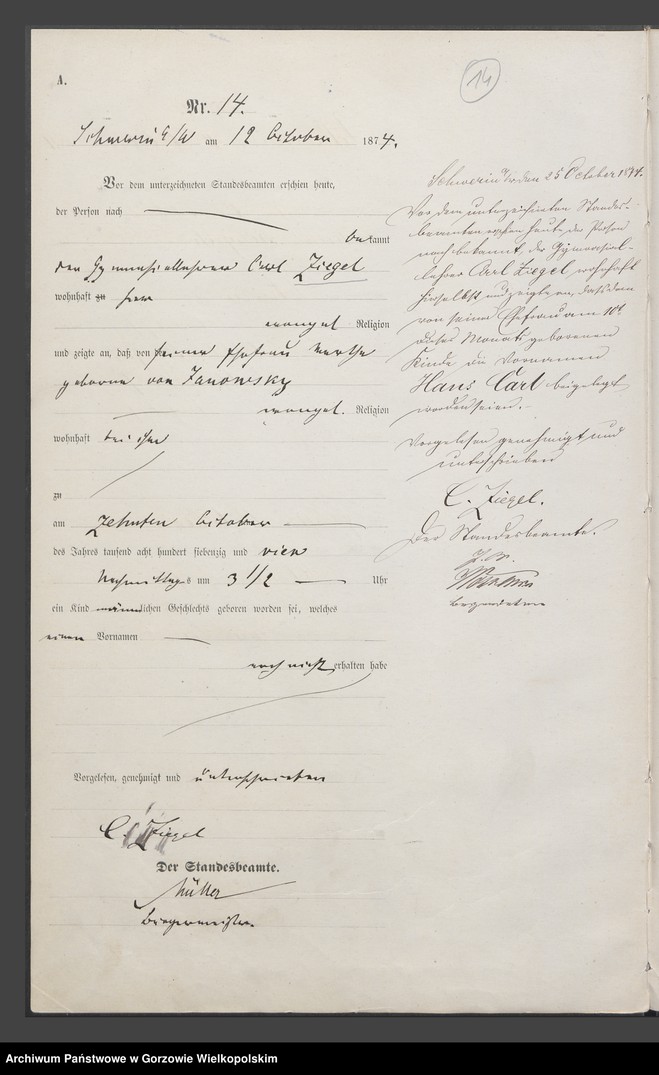 A.
14
Nr. 14.
Schwerin a/W am 12 October 1874.
Vor dem unterzeichneten Standesbeamten erschien heute,
der Person nach
bekannt
der Gymnasiallehrer Carl Ziegel
wohnhaft zu hier
evangel. Religion
und zeigte an, daß von seiner Ehefrau Martha
geborne von Janowsky
evangel. Religion
wohnhaft bei ihm
zu
am zehnten October
des Jahres tausend acht hundert siebenzig und vier
Nachmittags um 3 1/2 Uhr
ein Kind männlichen Geschlechts geboren worden sei, welches
einen Vornamen
noch nicht erhalten habe
Vorgelesen, genehmigt und unterschrieben
C. Ziegel
Der Standesbeamte.
Müller
Bürgermeister.
Schwerin a/W den 25 October 1874.
Vor dem unterzeichneten Standes-
beamten erschien heute der Person
nach bekannt, der Gymnasial-
lehrer Carl Ziegel, wohnhaft
hierselbst und zeigte an, daß dem
von seiner Ehefrau am 10t
dieses Monats geborenen
Kinde die Vornamen
Hans Carl beigelegt
worden seien.
Vorgelesen genehmigt und
unterschrieben
C. Ziegel.
Der Standesbeamte.
Beigeordneter
Archiwum Państwowe w Gorzowie Wielkopolskim